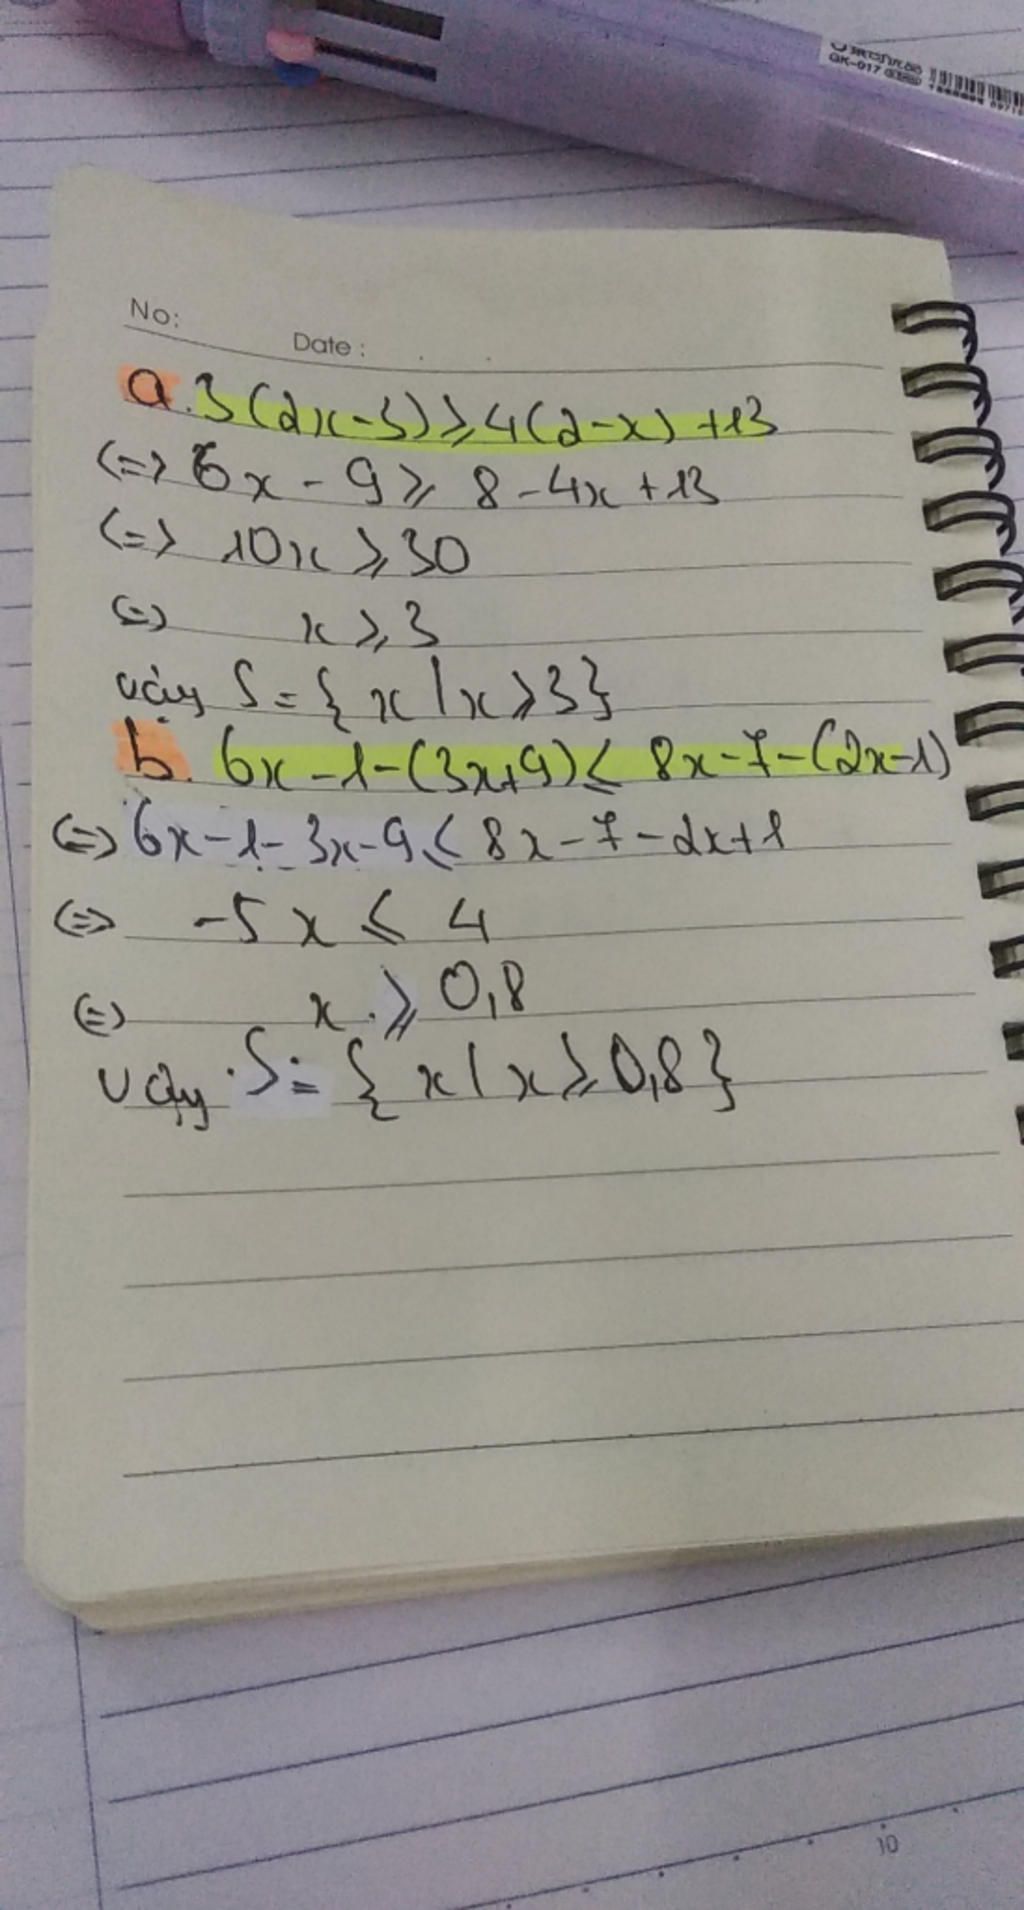 QK-017
No:
Date :
a. 3(2x-3) ⩾ 4(2-x) +13
<=> 6x - 9 ⩾ 8 - 4x + 13
<=> 10x ⩾ 30
<=> x ⩾ 3
vậy S = { x | x ⩾ 3 }
b. 6x - 1 - (3x+9) ⩽ 8x - 7 - (2x-1)
<=> 6x - 1 - 3x - 9 ⩽ 8x - 7 - 2x + 1
<=> -5x ⩽ 4
<=> x ⩾ 0,8
vậy S = { x | x ⩾ 0,8 }
10